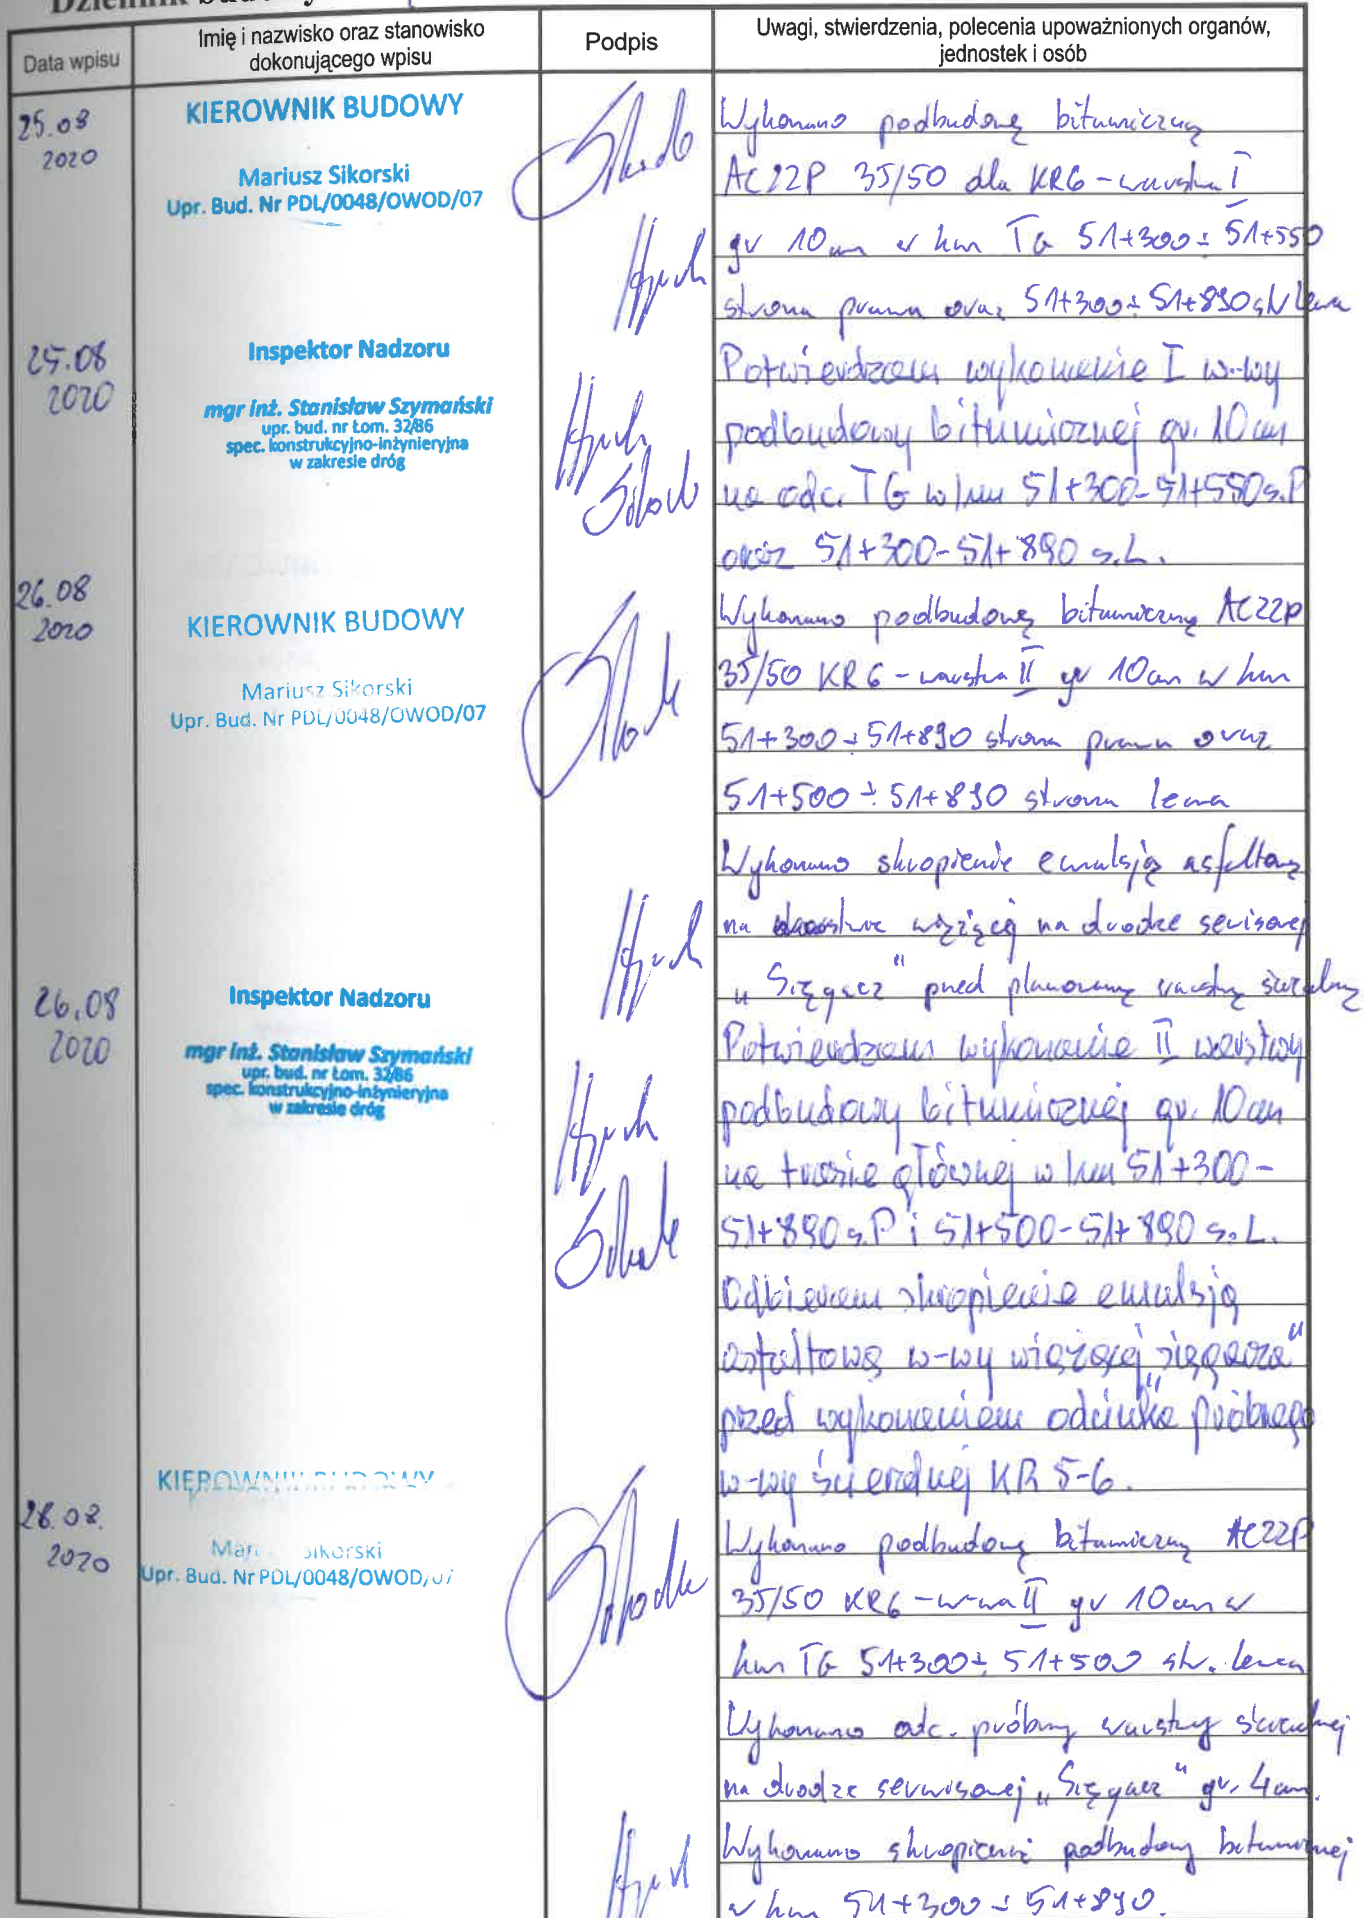 Dziennik budowy
Data wpisu
Imię i nazwisko oraz stanowisko
dokonującego wpisu
Podpis
Uwagi, stwierdzenia, polecenia upoważnionych organów,
jednostek i osób
25.08
2020
KIEROWNIK BUDOWY
Mariusz Sikorski
Upr. Bud. Nr PDL/0048/OWOD/07
Wykonano podbudowę bitumiczną
AC22P 35/50 dla KR6 - warstwa I
gr 10cm w km TG 51+300 ÷ 51+550
strona prawa oraz 51+300 ÷ 51+890 str lewa
25.08
2020
Inspektor Nadzoru
mgr inż. Stanisław Szymański
upr. bud. nr Łom. 32/86
spec. konstrukcyjno-inżynieryjna
w zakresie dróg
Potwierdzam wykonanie I w-wy
podbudowy bitumicznej gr. 10 cm
na odc. TG w km 51+300-51+550 s.P
oraz 51+300-51+890 s.L.
26.08
2020
KIEROWNIK BUDOWY
Mariusz Sikorski
Upr. Bud. Nr PDL/0048/OWOD/07
Wykonano podbudowę bitumiczną AC22P
35/50 KR6 - warstwa II gr 10cm w km
51+300 ÷ 51+890 strona prawa oraz
51+500 ÷ 51+890 strona lewa
Wykonano skropienie emulsją asfaltową
na warstwę wiążącą na drodze serwisowej
„Sięgacz" przed planowaną warstwą ścieralną
26.08
2020
Inspektor Nadzoru
mgr inż. Stanisław Szymański
upr. bud. nr Łom. 32/86
spec. konstrukcyjno-inżynieryjna
w zakresie dróg
Potwierdzam wykonanie II warstwy
podbudowy bitumicznej gr. 10 cm
na trasie głównej w km 51+300-
51+890 s.P i 51+500-51+890 s.L.
Odbieram skropienie emulsją
asfaltową w-wy wiążącej „sięgacza"
przed wykonaniem odcinka próbnego
w-wy ścieralnej KR 5-6.
28.08.
2020
KIEROWNIK BUDOWY
Mariusz Sikorski
Upr. Bud. Nr PDL/0048/OWOD/07
Wykonano podbudowę bitumiczną AC22P
35/50 KR6 - w-wa II gr 10cm w
km TG 51+300 ÷ 51+500 str. lewa
Wykonano odc. próbny warstwy ścieralnej
na drodze serwisowej „Sięgacz" gr. 4cm.
Wykonano skropienie podbudowy bitumicznej
w km 51+300 ÷ 51+890.